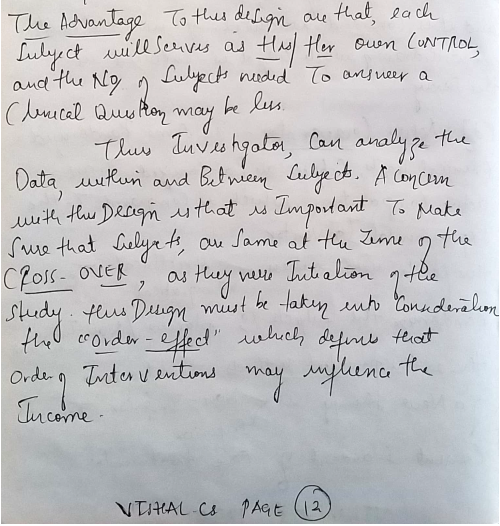 The Advantage To this design are that, each
Subject will serves as His/Her own CONTROL,
and the No of Subjects needed To answer a
Clinical Question may be less.
Thus Investigator, Can analyze the
Data, within and Between Subjects. A concern
with this Design is that is Important To Make
Sure that Subjects, are Same at the Time of the
CROSS-OVER, as they were Initiation of the
Study. this Design must be taken into Consideration
the "order-effect" which defines that
Order of Interventions may influence the
Income.
VISHAL-CS PAGE 12